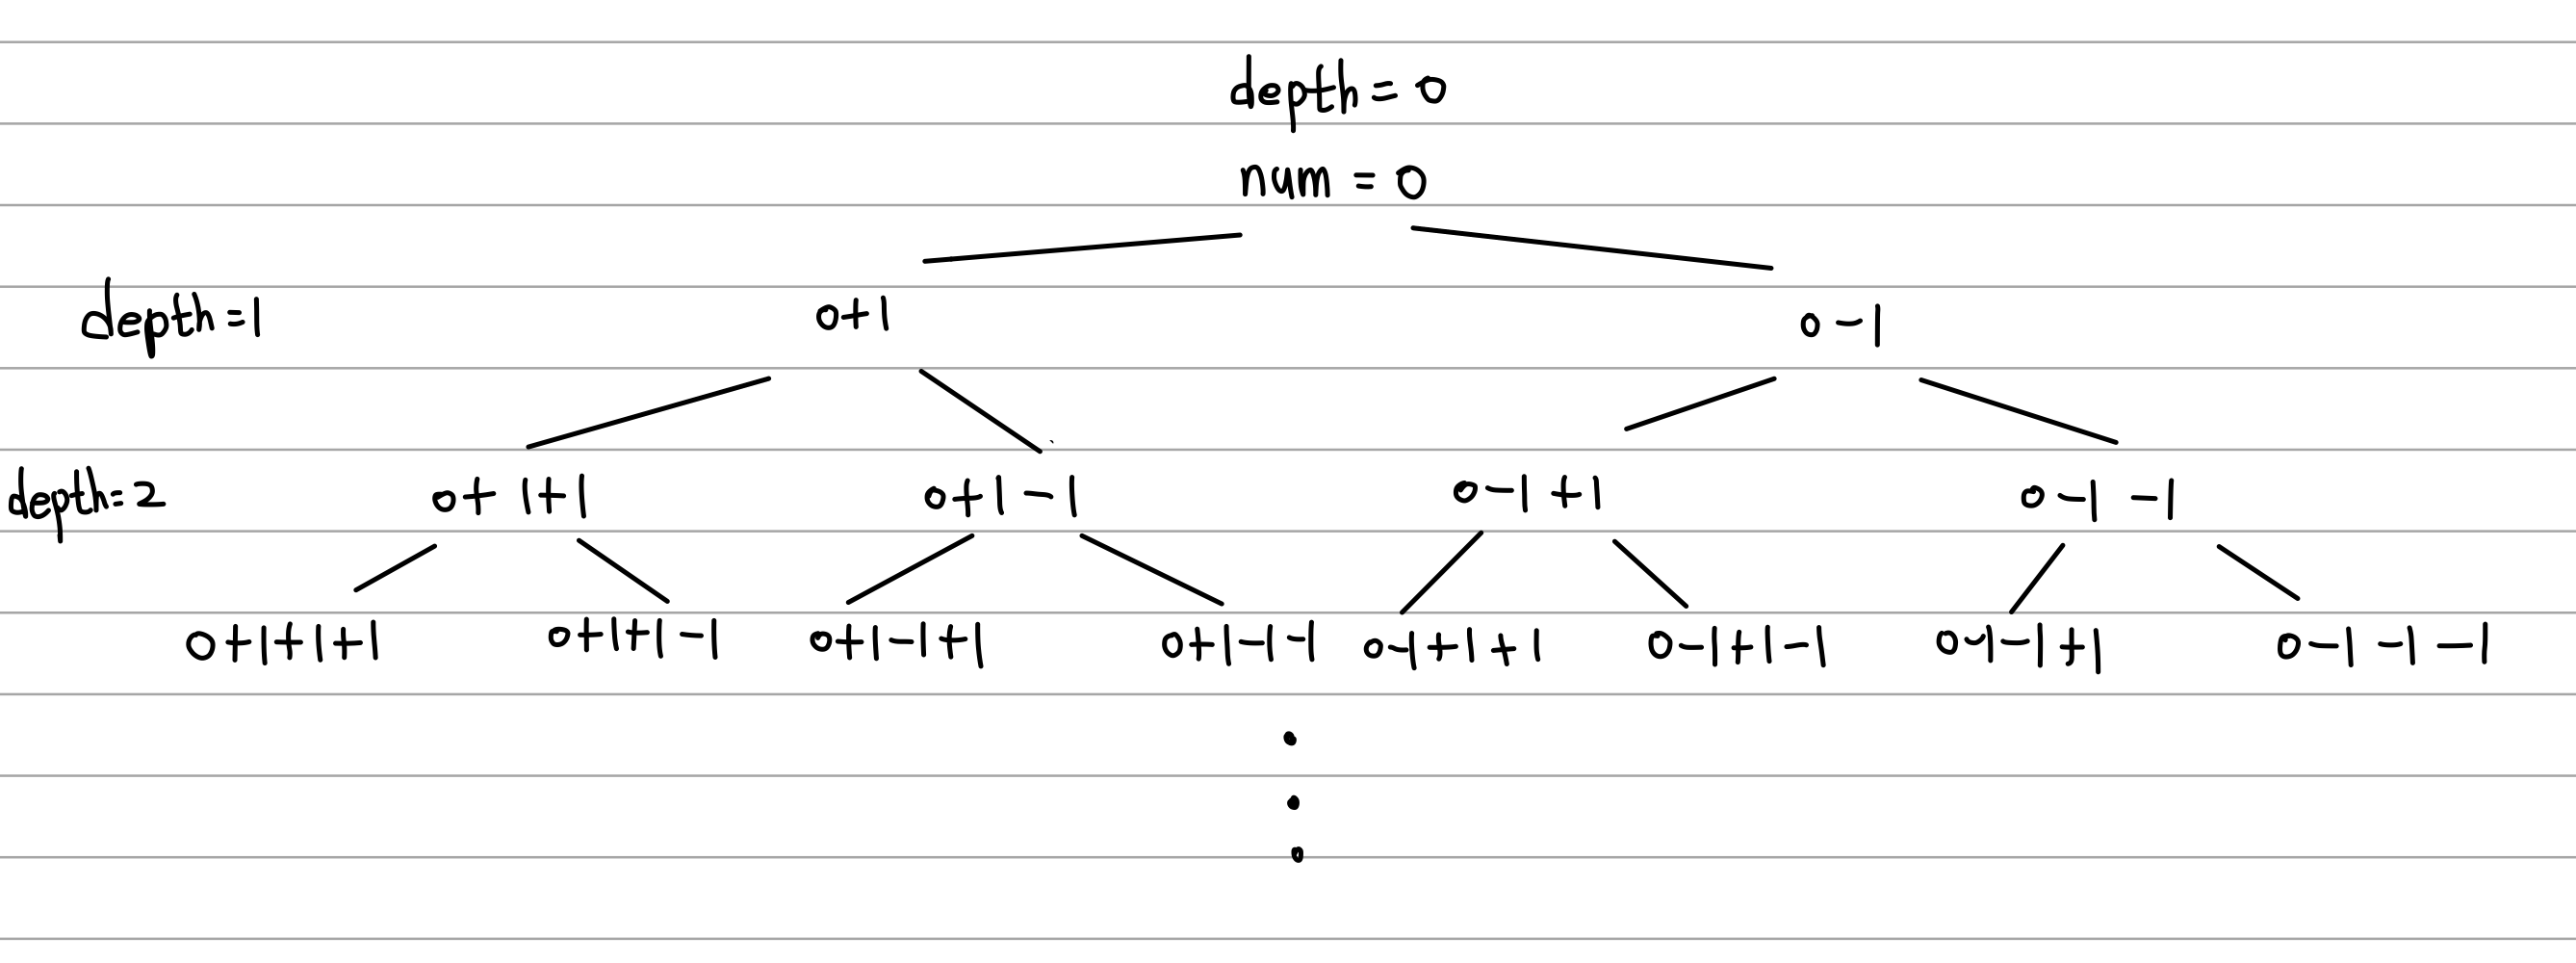 depth = 0
num = 0
depth=1 0+1 0-1
depth=2 0+1+1 0+1-1 0-1+1 0-1-1
0+1+1+1 0+1+1-1 0+1-1+1 0+1-1-1 0-1+1+1 0-1+1-1 0-1-1+1 0-1-1-1